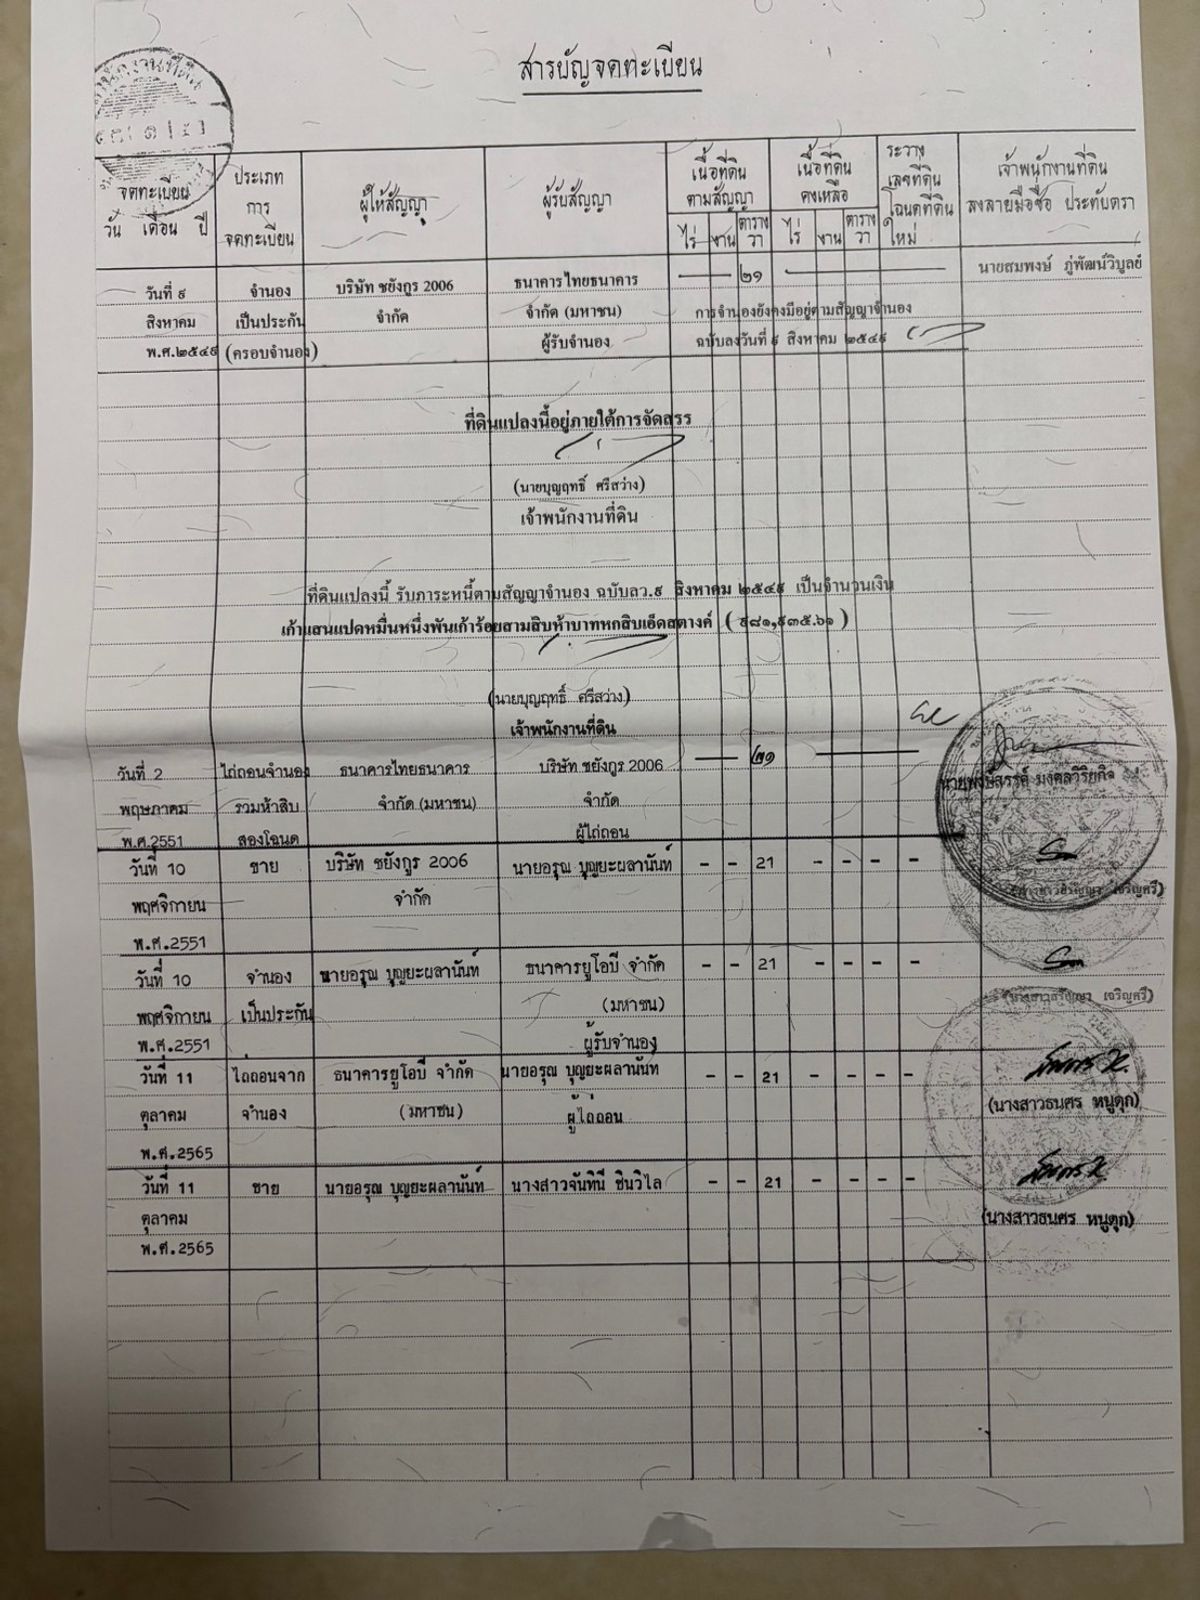 สารบัญจดทะเบียน
จดทะเบียน
วัน เดือน ปี
ประเภท
การ
จดทะเบียน
ผู้ให้สัญญา
ผู้รับสัญญา
เนื้อที่ดิน
ตามสัญญา
ไร่ งาน ตาราง
วา
เนื้อที่ดิน
คงเหลือ
ไร่ งาน ตาราง
วา
ระวาง
เลขที่ดิน
โฉนดที่ดิน
ใหม่
เจ้าพนักงานที่ดิน
ลงลายมือชื่อ ประทับตรา
วันที่ ๙ จำนอง บริษัท ชยังกูร 2006 ธนาคารไทยธนาคาร ๒๑ นายสมพงษ์ ภู่พัฒน์วิบูลย์
สิงหาคม เป็นประกัน จำกัด จำกัด (มหาชน) การจำนองยังคงมีอยู่ตามสัญญาจำนอง
พ.ศ.๒๕๔๙ (ครอบจำนอง) ผู้รับจำนอง ฉบับลงวันที่ ๙ สิงหาคม ๒๕๔๙
ที่ดินแปลงนี้อยู่ภายใต้การจัดสรร
(นายบุญฤทธิ์ ศรีสว่าง)
เจ้าพนักงานที่ดิน
ที่ดินแปลงนี้ รับภาระหนี้ตามสัญญาจำนอง ฉบับลว.๙ สิงหาคม ๒๕๔๙ เป็นจำนวนเงิน
เก้าแสนแปดหมื่นหนึ่งพันเก้าร้อยสามสิบห้าบาทหกสิบเอ็ดสตางค์ ( ๙๘๑,๙๓๕.๖๑ )
(นายบุญฤทธิ์ ศรีสว่าง)
เจ้าพนักงานที่ดิน
วันที่ 2 ไถ่ถอนจำนอง ธนาคารไทยธนาคาร บริษัท ชยังกูร 2006 ๒๑ นายพงษ์สรรค์ มงคลวิริยกิจ
พฤษภาคม รวมห้าสิบ จำกัด (มหาชน) จำกัด
พ.ศ.2551 สองโฉนด ผู้ไถ่ถอน
วันที่ 10 ขาย บริษัท ชยังกูร 2006 นายอรุณ บุญยะผลานันท์ - - 21 - - - -
พฤศจิกายน จำกัด
พ.ศ.2551
วันที่ 10 จำนอง นายอรุณ บุญยะผลานันท์ ธนาคารยูโอบี จำกัด - - 21 - - - -
พฤศจิกายน เป็นประกัน (มหาชน)
พ.ศ.2551 ผู้รับจำนอง
วันที่ 11 ไถ่ถอนจาก ธนาคารยูโอบี จำกัด นายอรุณ บุญยะผลานันท์ - - 21 - - - -
ตุลาคม จำนอง (มหาชน) ผู้ไถ่ถอน (นางสาวธนศร หนูดุก)
พ.ศ.2565
วันที่ 11 ขาย นายอรุณ บุญยะผลานันท์ นางสาวจันทินี ชินวิไล - - 21 - - - -
ตุลาคม (นางสาวธนศร หนูดุก)
พ.ศ.2565